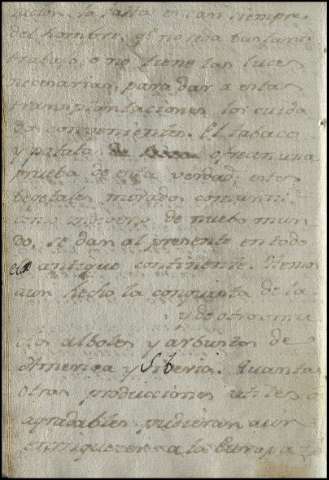 la falta es casi siempre
del hombre, qe no
trabajo, o no tiene las luces
necesarias, para dar a estas
transplantaciones los cuida
dos convenientes. El tabaco
y patata ofrecen una
prueba de esta verdad; estos
vegetales mirados
como indigeno de nuebo mun
do, se dan al presente en todo
el antiguo continente. Hemos
aun hecho la conquista de la
y de otros mu
chos alboles y arbustos de
America y Siberia. Quantas
otras producciones utiles o
agradables pudieran aun
enriquezer a la Europa